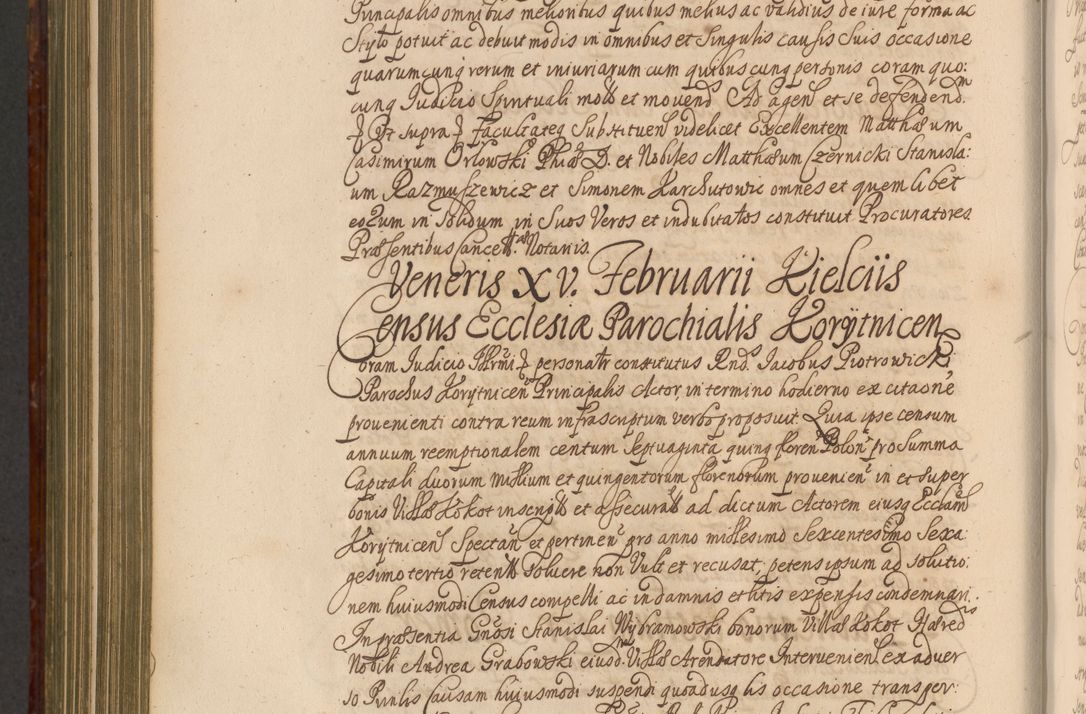 Principalis omnibus melioribus quibus melius ac validius de iure forma ac
Stylo potuit ac debuit modis in omnibus et Singulis causis Suis occasione
quarumcunq rerum et iniuriarum cum quibuscunq personis coram quo:
cunq Judicio Spirituali mott et movend Ad agen et se defendend
Vt supra Facultateq Substituen videlicet Excellentem Matthæum
Casimirum Orłowski Phiæ D. et Nobiles Matthæum Czernicki Stanisla:
um Razmuszewicz et Simonem Karchutowic omnes et quemlibet
eorum in Solidum in Suos Veros et indubitatos constituit Procuratores
Præsentibus Cancell. Notariis.
Veneris XV. Februarii Kielciis
Census Ecclesiæ Parochialis Korÿtnicen
Coram Judicio personatr constitutus Rnds Jacobus Piotrowicki
Parochus Korytnicen Principalis Actor, in termino hodierno ex citaone
provenienti contra reum infrascriptum verbo proposuit. Quia ipse censum
annuum reemptionalem centum Septuaginta quinq floren Polon pro Summa
Capitali duorum millium et quingentorum florenorum provenien in et super
bonis Villæ Kokot inscript et assecurat ad dictum Actorem eiusq Ecclam
Korÿtnicen Spectan et pertinen pro anno millesimo Sexcentesimo Sexa:
gesimo tertio retent Solvere non Vult et recusat, petens ipsum ad Solutio:
nem huiusmodi Census compelli ac in damnis et litis expensis condemnari.
In præsentia Gnosi Stanislai Wybramowski bonorum Villæ Kokot Hæredis
Nobili Andrea Grabowski eiusd. Villæ Arendatore Intervenien ex adver
so Prinlis Causam huiusmodi suspendi quoadusq lis occasione transfer: